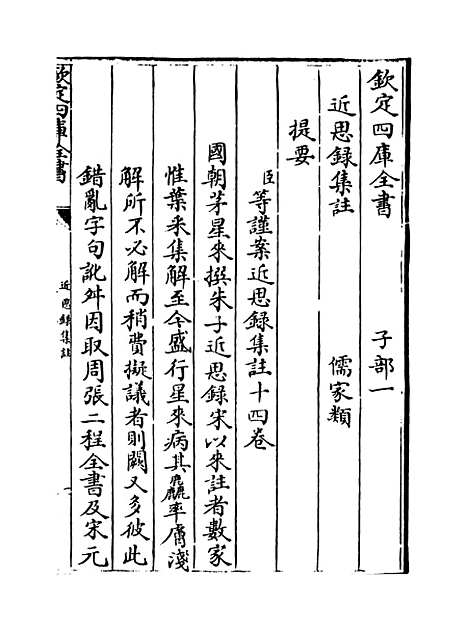 欽定四庫全書　子部一
近思録集註　儒家類
提要
臣等謹案近思録集註十四卷
國朝茅星來撰朱子近思録宋以來註者數家
惟葉采集解至今盛行星來病其麤率膚淺
解所不必解而稍費擬議者則闕又多彼此
錯亂字句訛舛因取周張二程全書及宋元
欽定四庫全書
近思録集註
一